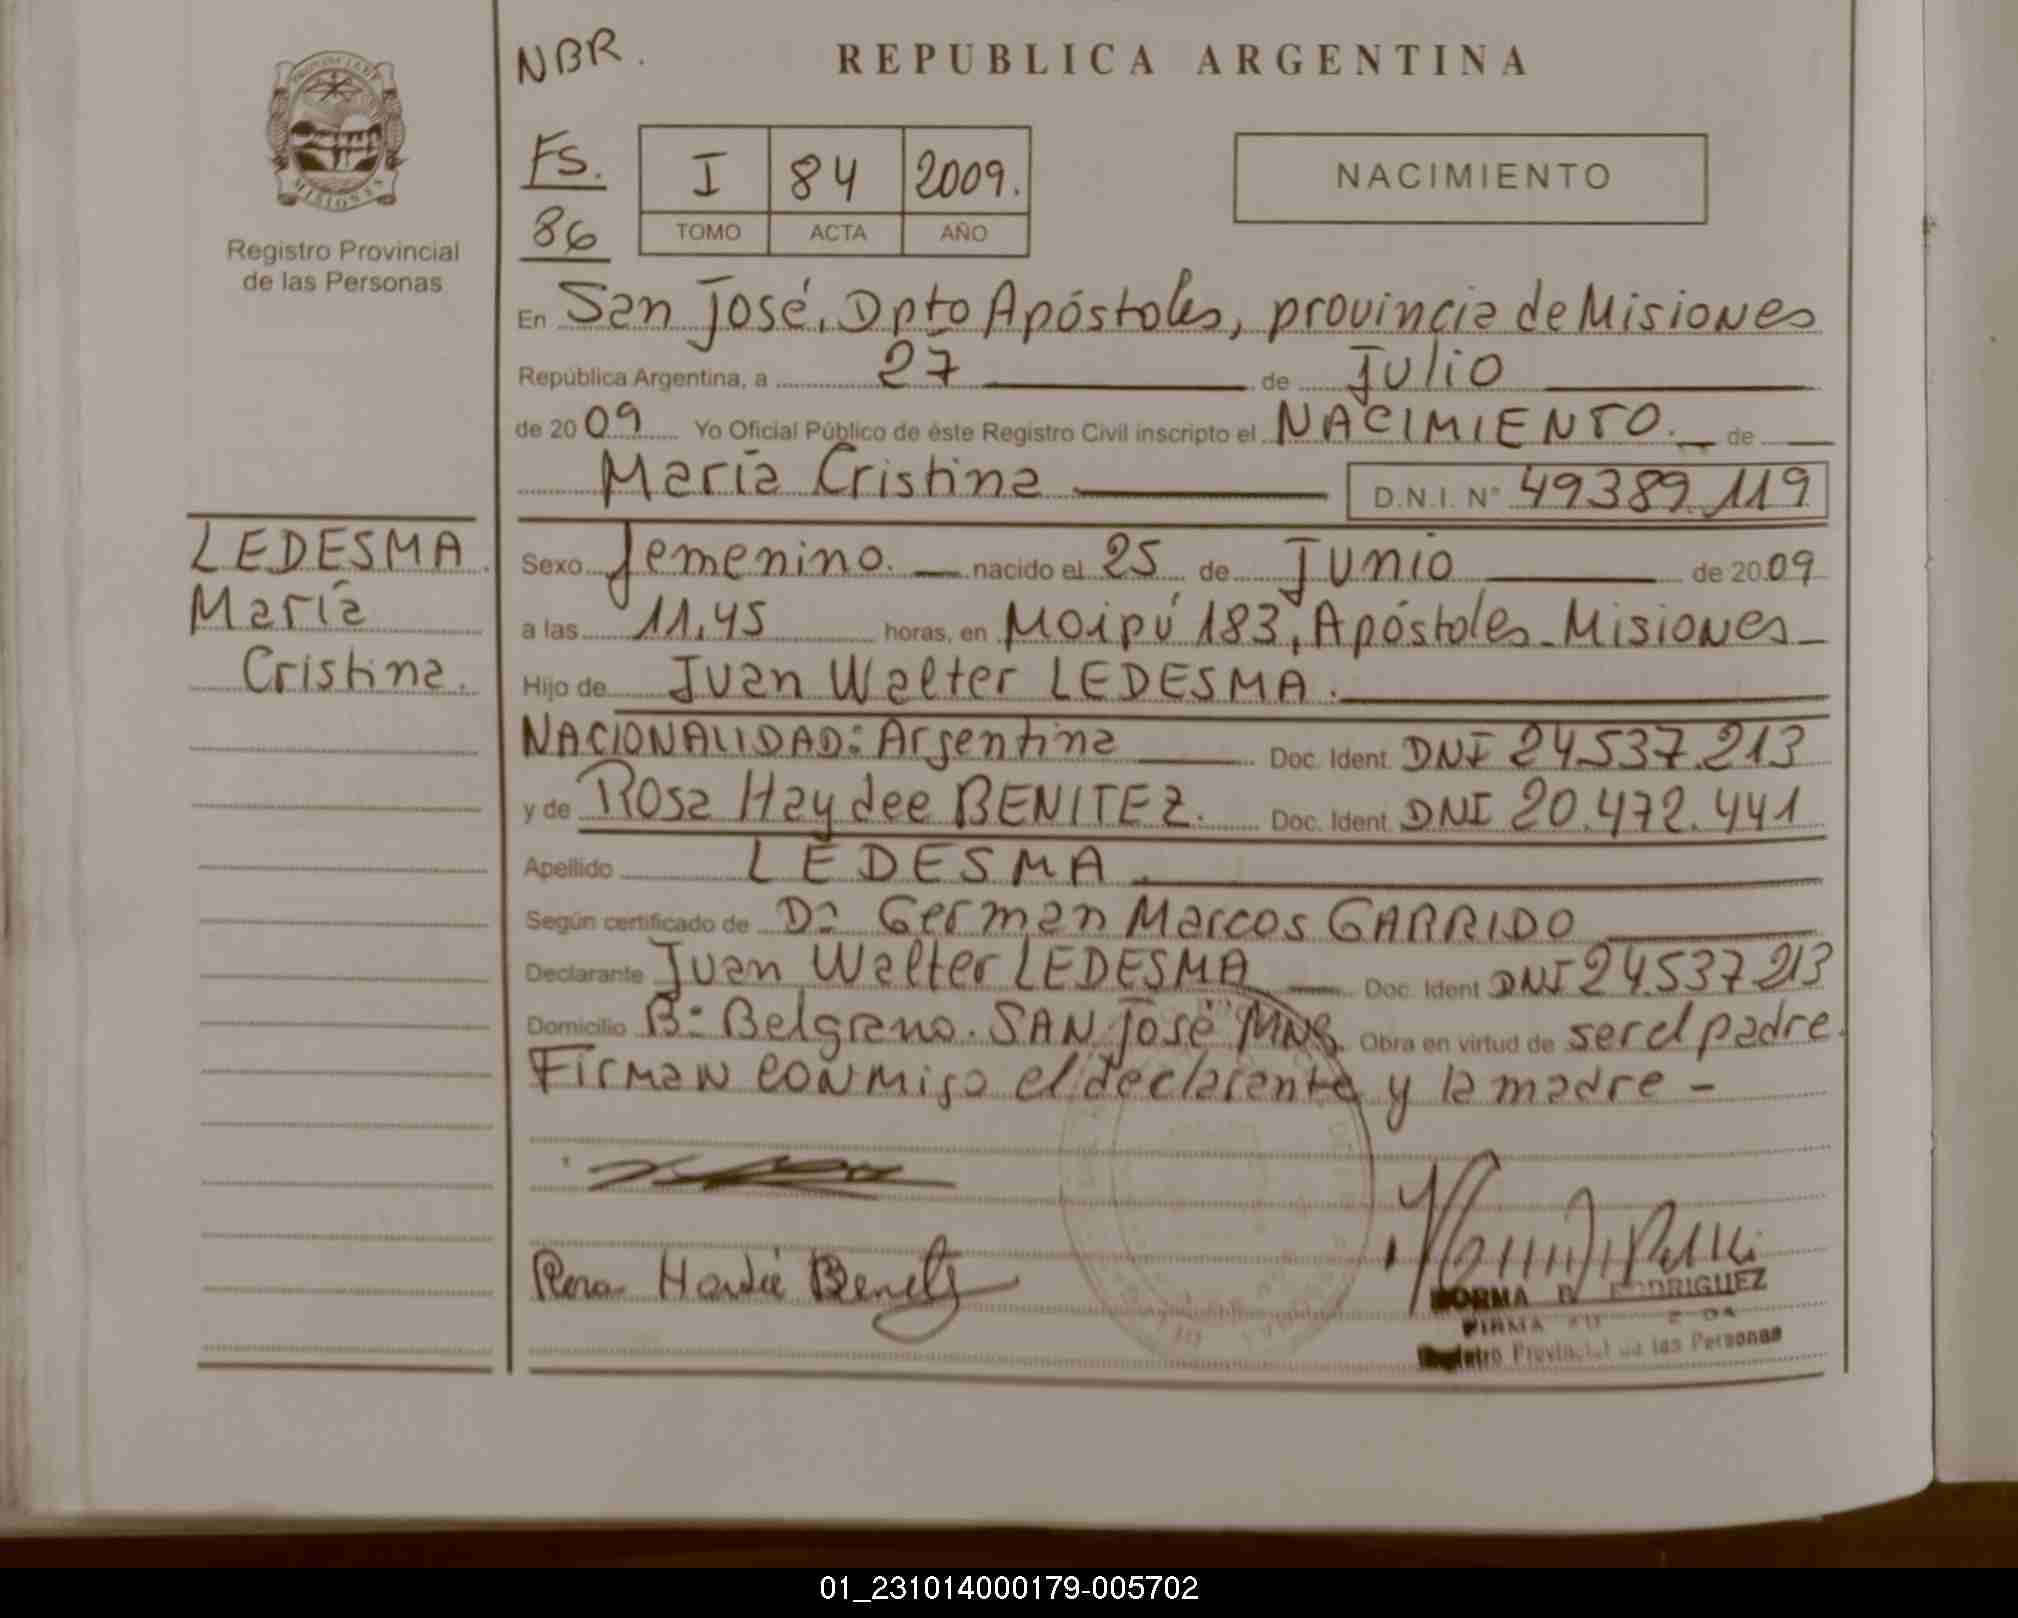 NBR.
REPUBLICA ARGENTINA
Fs.
86
I 84 2009.
TOMO ACTA AÑO
NACIMIENTO
MISIONES
Registro Provincial
de las Personas
En San José, Dpto Apóstoles, provincia de Misiones
República Argentina, a 27 de Julio
de 2009 Yo Oficial Público de éste Registro Civil inscripto el NACIMIENTO. de
María Cristina D.N.I. N° 49389.119
LEDESMA
María
Cristina.
Sexo femenino. nacido el 25 de Junio de 2009
a las 11,45 horas, en Moipú 183, Apóstoles - Misiones -
Hijo de Juan Walter LEDESMA.
NACIONALIDAD: Argentina Doc. Ident. DNI 24.537.213
y de Rosa Haydee BENITEZ. Doc. Ident. DNI 20.472.441
Apellido LEDESMA
Según certificado de Dr German Marcos GARRIDO
Declarante Juan Walter LEDESMA Doc. Ident DNI 24.537.213
Domicilio B° Belgrano. SAN José MNS. Obra en virtud de ser el padre.
Firman conmigo el declarante y la madre -
NORMA B. RODRIGUEZ
Registro Provincial de las Personas
01_231014000179-005702